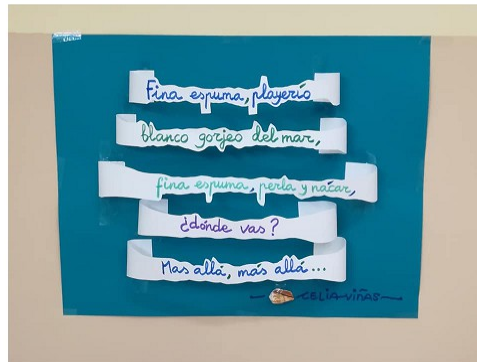 Fina espuma, playerío
blanco gorjeo del mar,
fina espuma, perla y nácar,
¿dónde vas?
Mas allá, más allá...
CELIA VIÑAS